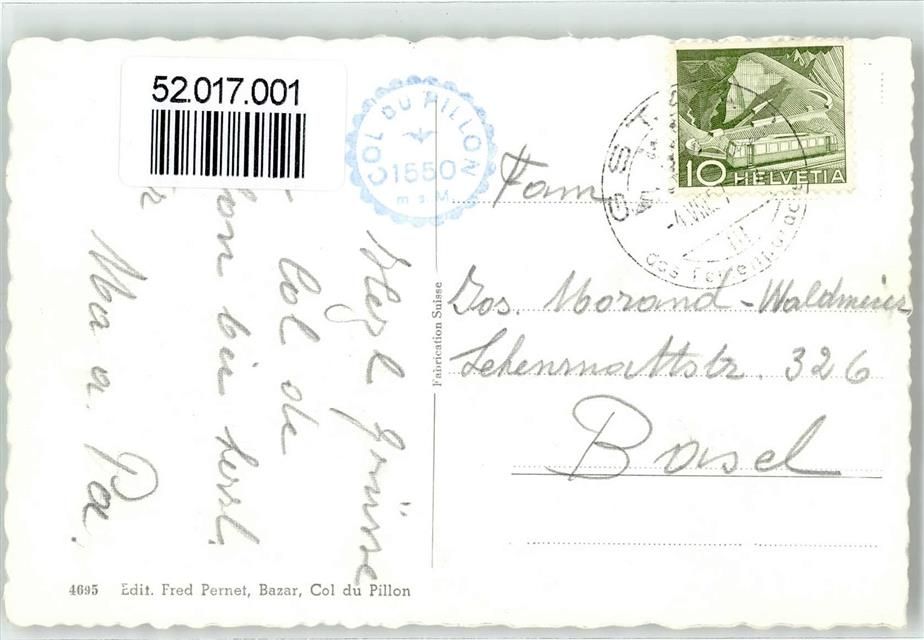 52.017.001
COL DU PILLON
1550
m s. M.
Herzl grüsse
Col de
bin herzl.
Ma u. Pa.
Fabrication Suisse
10 HELVETIA
GSTA
-4.VIII
Fam
Jos. Morand-Waldmeier
Lehenmattstr. 326
Basel
4695 Edit. Fred Pernet, Bazar, Col du Pillon